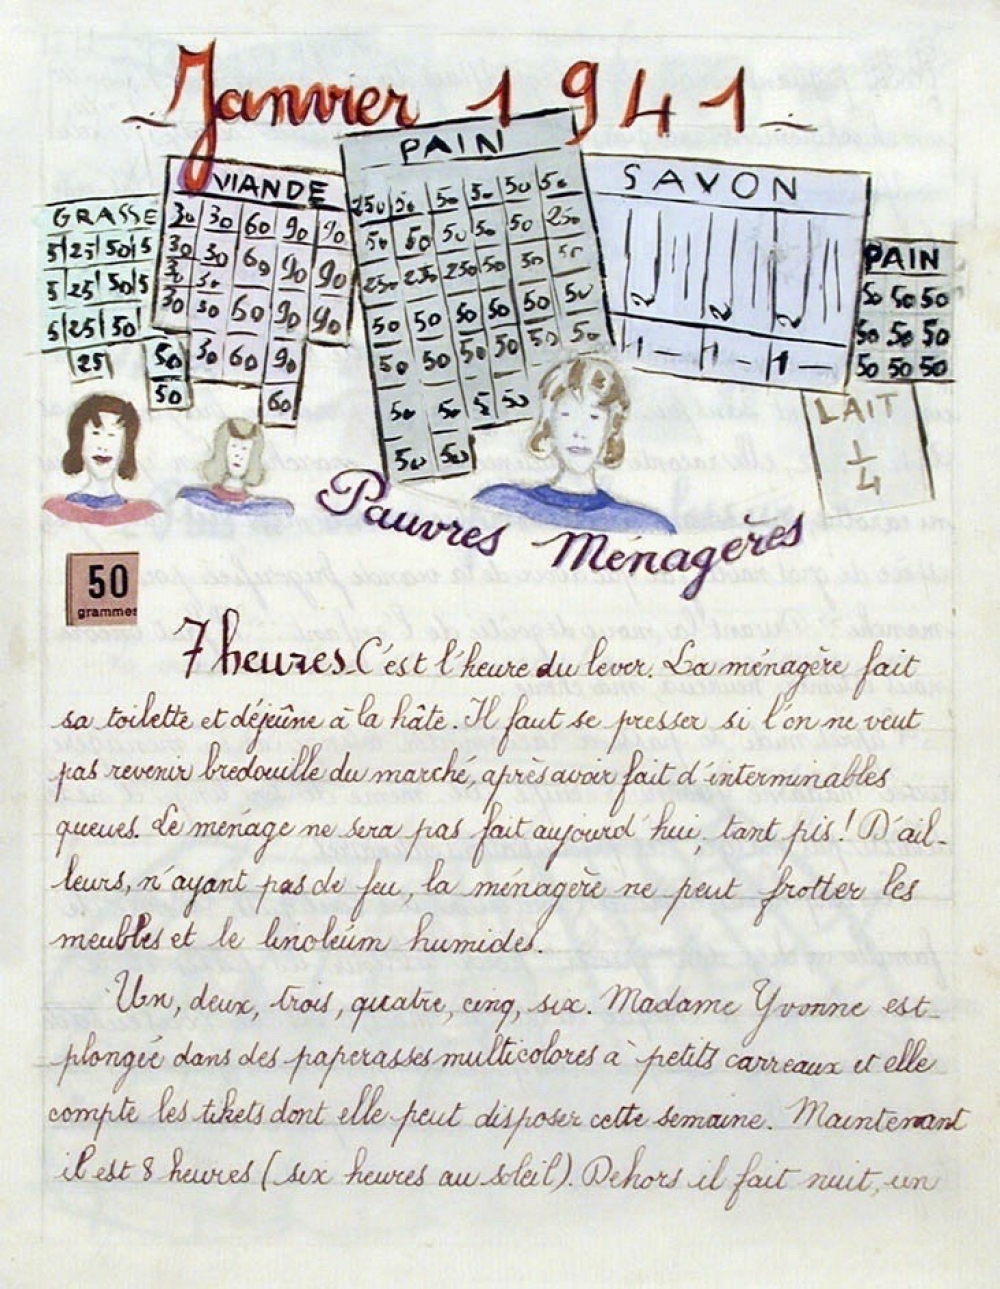 Janvier 1941.
GRASSE
5 25 50 5
5 25 50 5
5 25 50
25
VIANDE
30 30 60 90 90
30 30 60 90 90
30 30 60 90 90
50 30 60 90
50 60
PAIN
250 50 50 50 50 50
50 50 50 50 50 250
250 250 250 50 50 50
50 50 50 50 50 50
50 50 50 50 50 50
50 50 5 50
50 50
SAVON
1 1 - 1 -
PAIN
50 50 50
50 50 50
50 50 50
LAIT
1/4
Pauvres Ménagères
50
grammes
7 heures. C'est l'heure du lever. La ménagère fait
sa toilette et déjeûne à la hâte. Il faut se presser si l'on ne veut
pas revenir bredouille du marché, après avoir fait d'interminables
queues. Le ménage ne sera pas fait aujourd'hui, tant pis! D'ail-
leurs, n'ayant pas de feu, la ménagère ne peut frotter les
meubles et le linoléum humides.
Un, deux, trois, quatre, cinq, six. Madame Yvonne est
plongée dans des paperasses multicolores à petits carreaux et elle
compte les tikets dont elle peut disposer cette semaine. Maintenant
il est 8 heures (six heures au soleil). Dehors il fait nuit, un